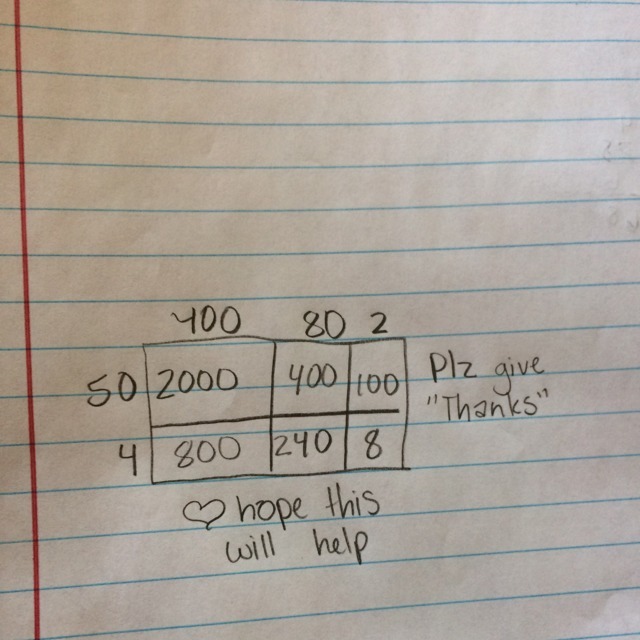 400 80 2
50 2000 400 100
4 800 240 8
Plz give
"Thanks"
♡ hope this
will help